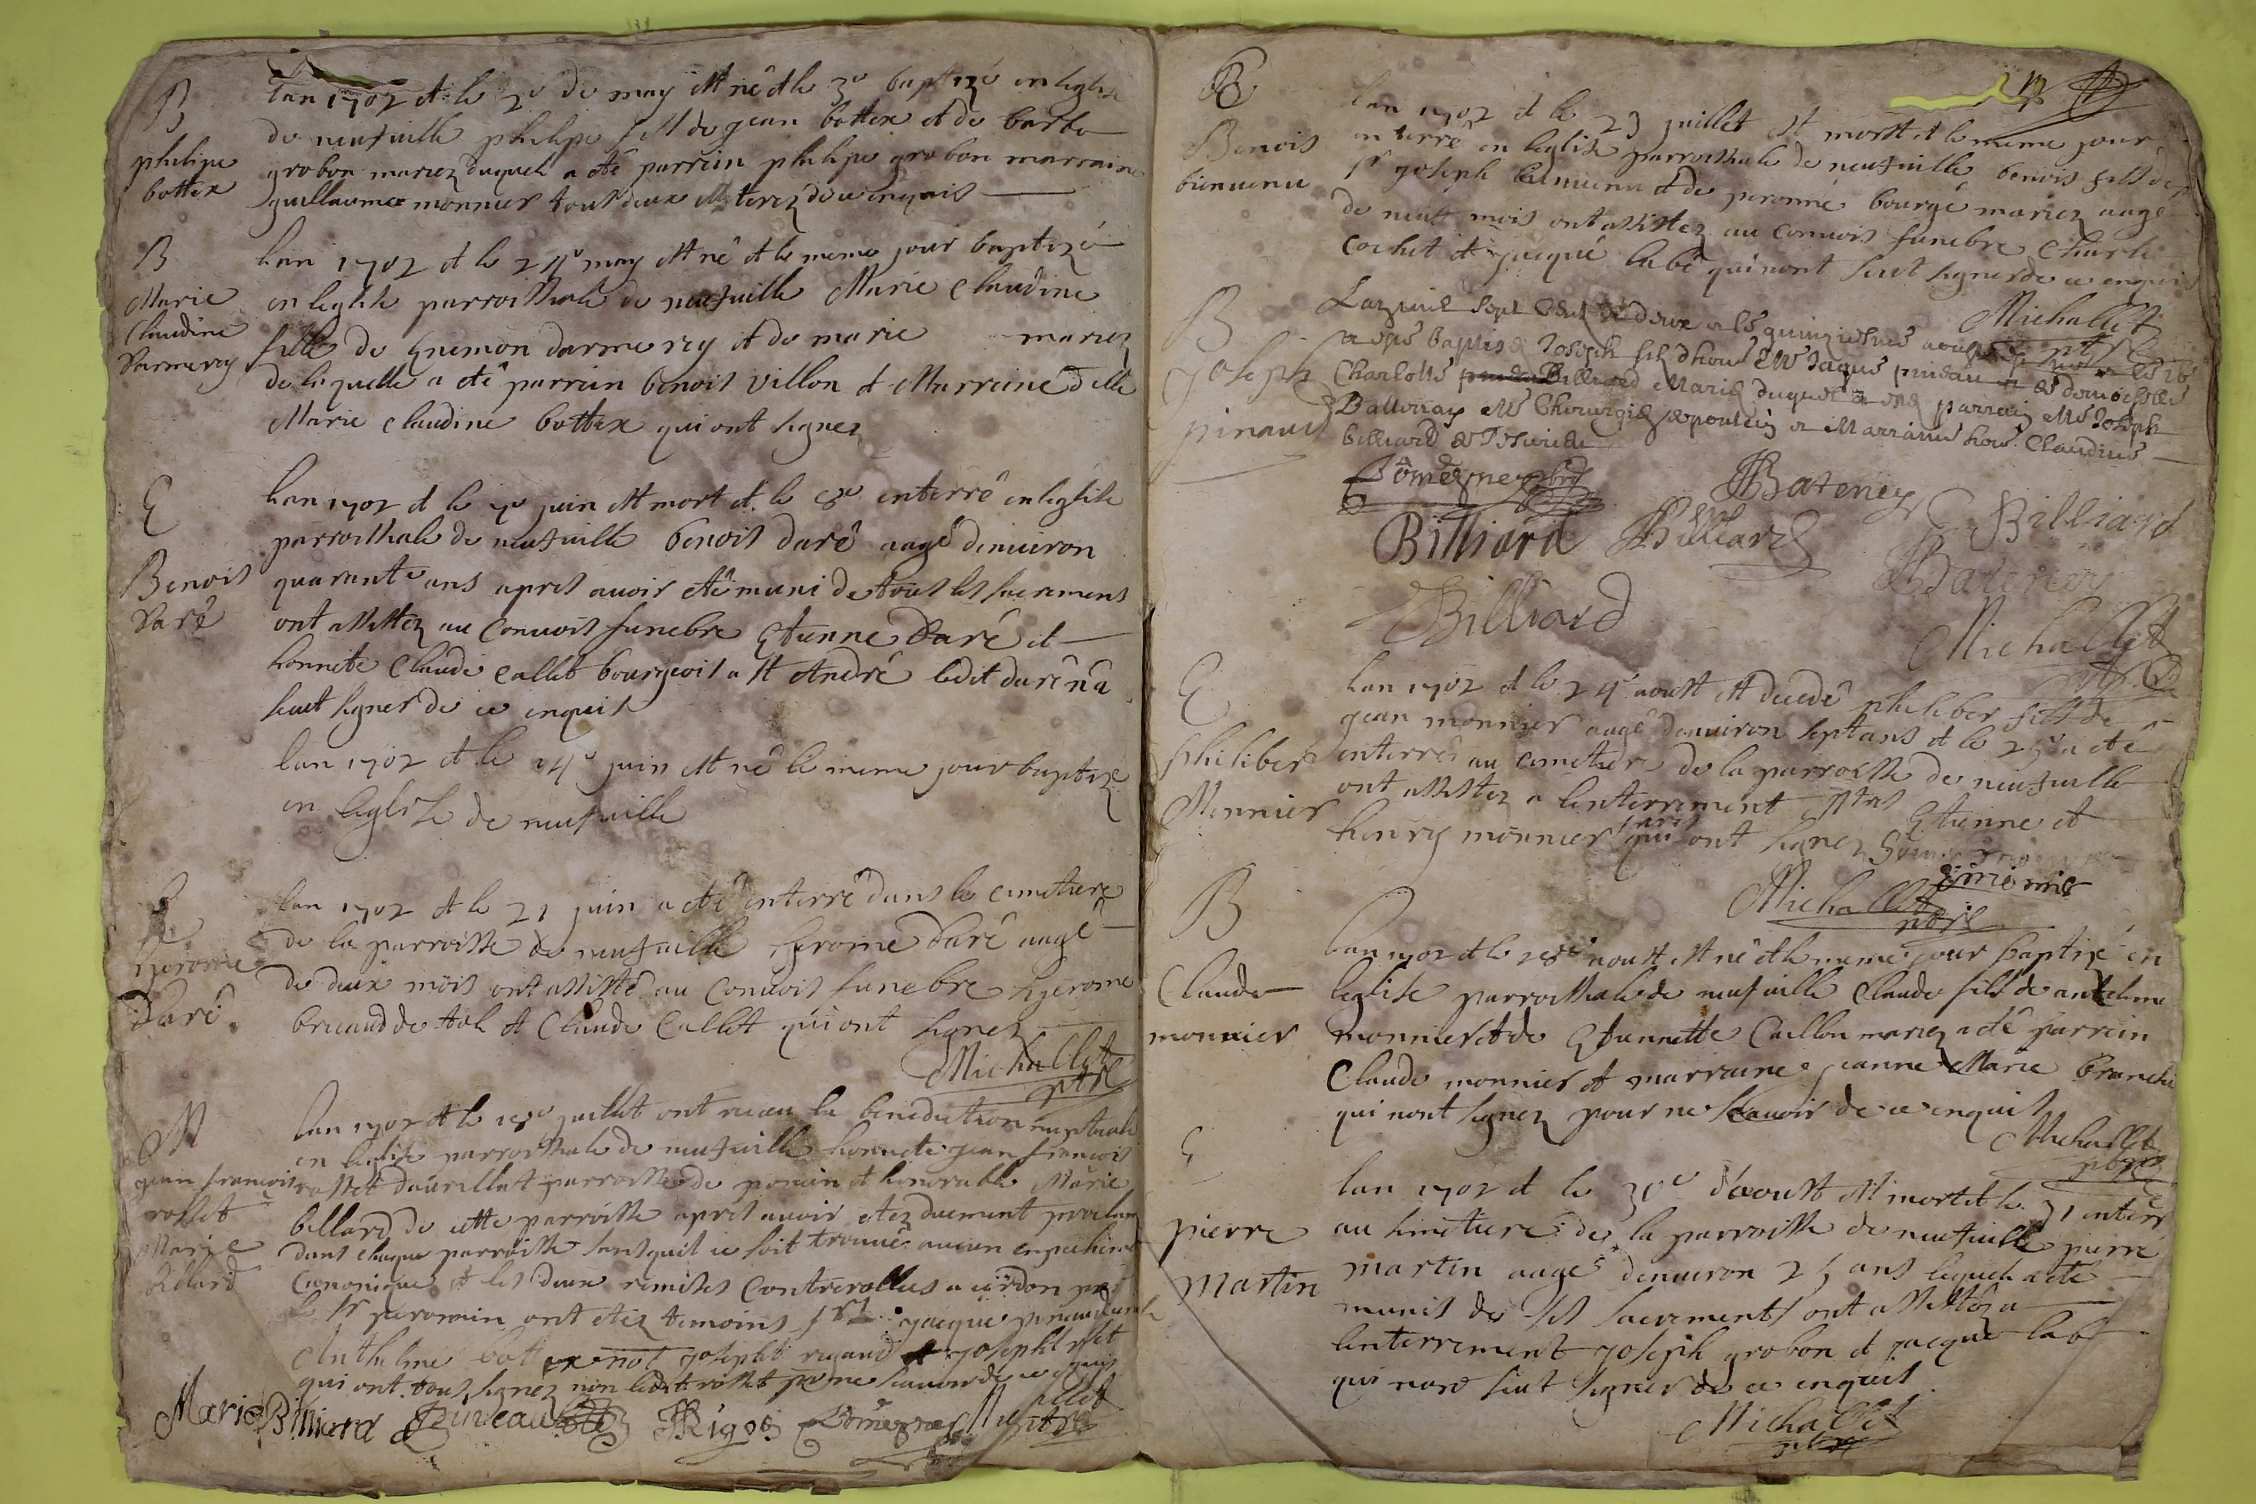 B
philipe
bottex
Lan 1702 et le 2e de may est né et le 3e baptizé en leglise
de neufuille philipe fils de jean bottex et de barbe
grobon mariez duquel a eté parrein philipe grobon marraine
guillauma monnier tous deux illeterez de ce enquis
B
Marie
Claudine
Darmerey
Lan 1702 et le 24e may est né et le meme jour baptizé
en leglise parroissiale de neufuille Marie Claudine
fille de darmerey et de marie mariez
de laquelle a eté parrein benoit villon et Marreine delle
Marie Claudine bottex qui ont signez
E
Benoit
Daré
Lan 1702 et le 7e juin est mort et le 8e enterré en leglise
parroissiale de neufuille benoit daré aagé denuiron
quarante ans apres auoir eté muni de tous les sacrements
ont assistez au Conuois funebre Etienne Daré et
honnete Claude Callet bourgeois a st André ledit daré na
seut signer de ce enquis
Lan 1702 et le 14e juin est né le meme jour baptizé
en leglise de neufuille
E
hjerome
Daré
Lan 1702 et le 21 juin a eté enterré dans le cimetiere
de la parroisse de neufuille hjerome Daré aagé
de deux mois ont assisté au Conuois funebre hjerome
bruand de et Claude Callet qui ont signez
Michallet
ptre
M
jean francois
rosset
Marie
billard
Lan 1702 et le 18e juillet ont receu la benediction nuptiale
en leglise parroissiale de neufuille honnete jean francois
rosset daurillat parroisse de poncin et honorable Marie
billard de cette parroisse apres auoir etez duement proclamez
dans chaque parroisse sans quil se soit trouué aucun enpechiment
Canonique et les deux remises Contrerollees a cerdon par
le sr peronnin ont etez temoins srs jacque pineau
Anthelme bottex not joseph rigaud et joseph
qui ont tous signez non ledit rosset pour ne scauoir de ce enquis
Marie Billiard Pineau Rigod Domergne Michallet
ptre
E
Benois
bienuenu
Lan 1702 et le 23 juillet est mort et le meme jour
enterré en leglise parroissiale de neufuille benois fils de
sr joseph bienuenu et de peronne bourgé mariez aagé
de neuf mois ont assistez au Conuois funebre Charle
Cochet et jacque labé qui nont seut signer de ce enquis
Michallet
ptre
B
joseph
pinaud
Lan mil sept cent et deux et le quinziesme aoust
a esté baptisé Joseph fils dhon Me Jaques pineau et de damoiselle
Charlotte Billiard Mariés duquel a esté parrein Me Joseph
Ballerray Me Chirurgien et Marraine hon. Claudine
billiard
Domergne ptre
Bateney
Billiard Billiard C Billiard
Bateney
Billiard
Michallet
ptre
E
philiber
Monnier
Lan 1702 et le 24e aoust est decedé philiber fils de
jean monnier aagé denuiron sept ans et le 25e a eté
enterré au cimetiere de la parroisse de neufuille
ont assistez a lenterrement Etienne et
henry monnier qui ont signez
Michallet
ptre
B
Claude
monnier
Lan 1702 et le 28e aoust est né et le meme jour baptizé en
leglise parroissiale de neufuille Claude fils de antelme
monnier et de Etiennette Caillon mariez a eté parrein
Claude monnier et marraine jeanne Marie branche
qui nont signez pour ne scauoir de ce enquis
Michallet
ptre
E
pierre
Martin
Lan 1702 et le 30e daoust est mort et le 31 enterré
au simetiere de la parroisse de neufuille pierre
martin aagé denuiron 25 ans lequel a eté
munis de ses sacrements ont assistez a
lenterrement joseph grobon et jacque labé
qui nont seut signer de ce enquis
Michallet
ptre